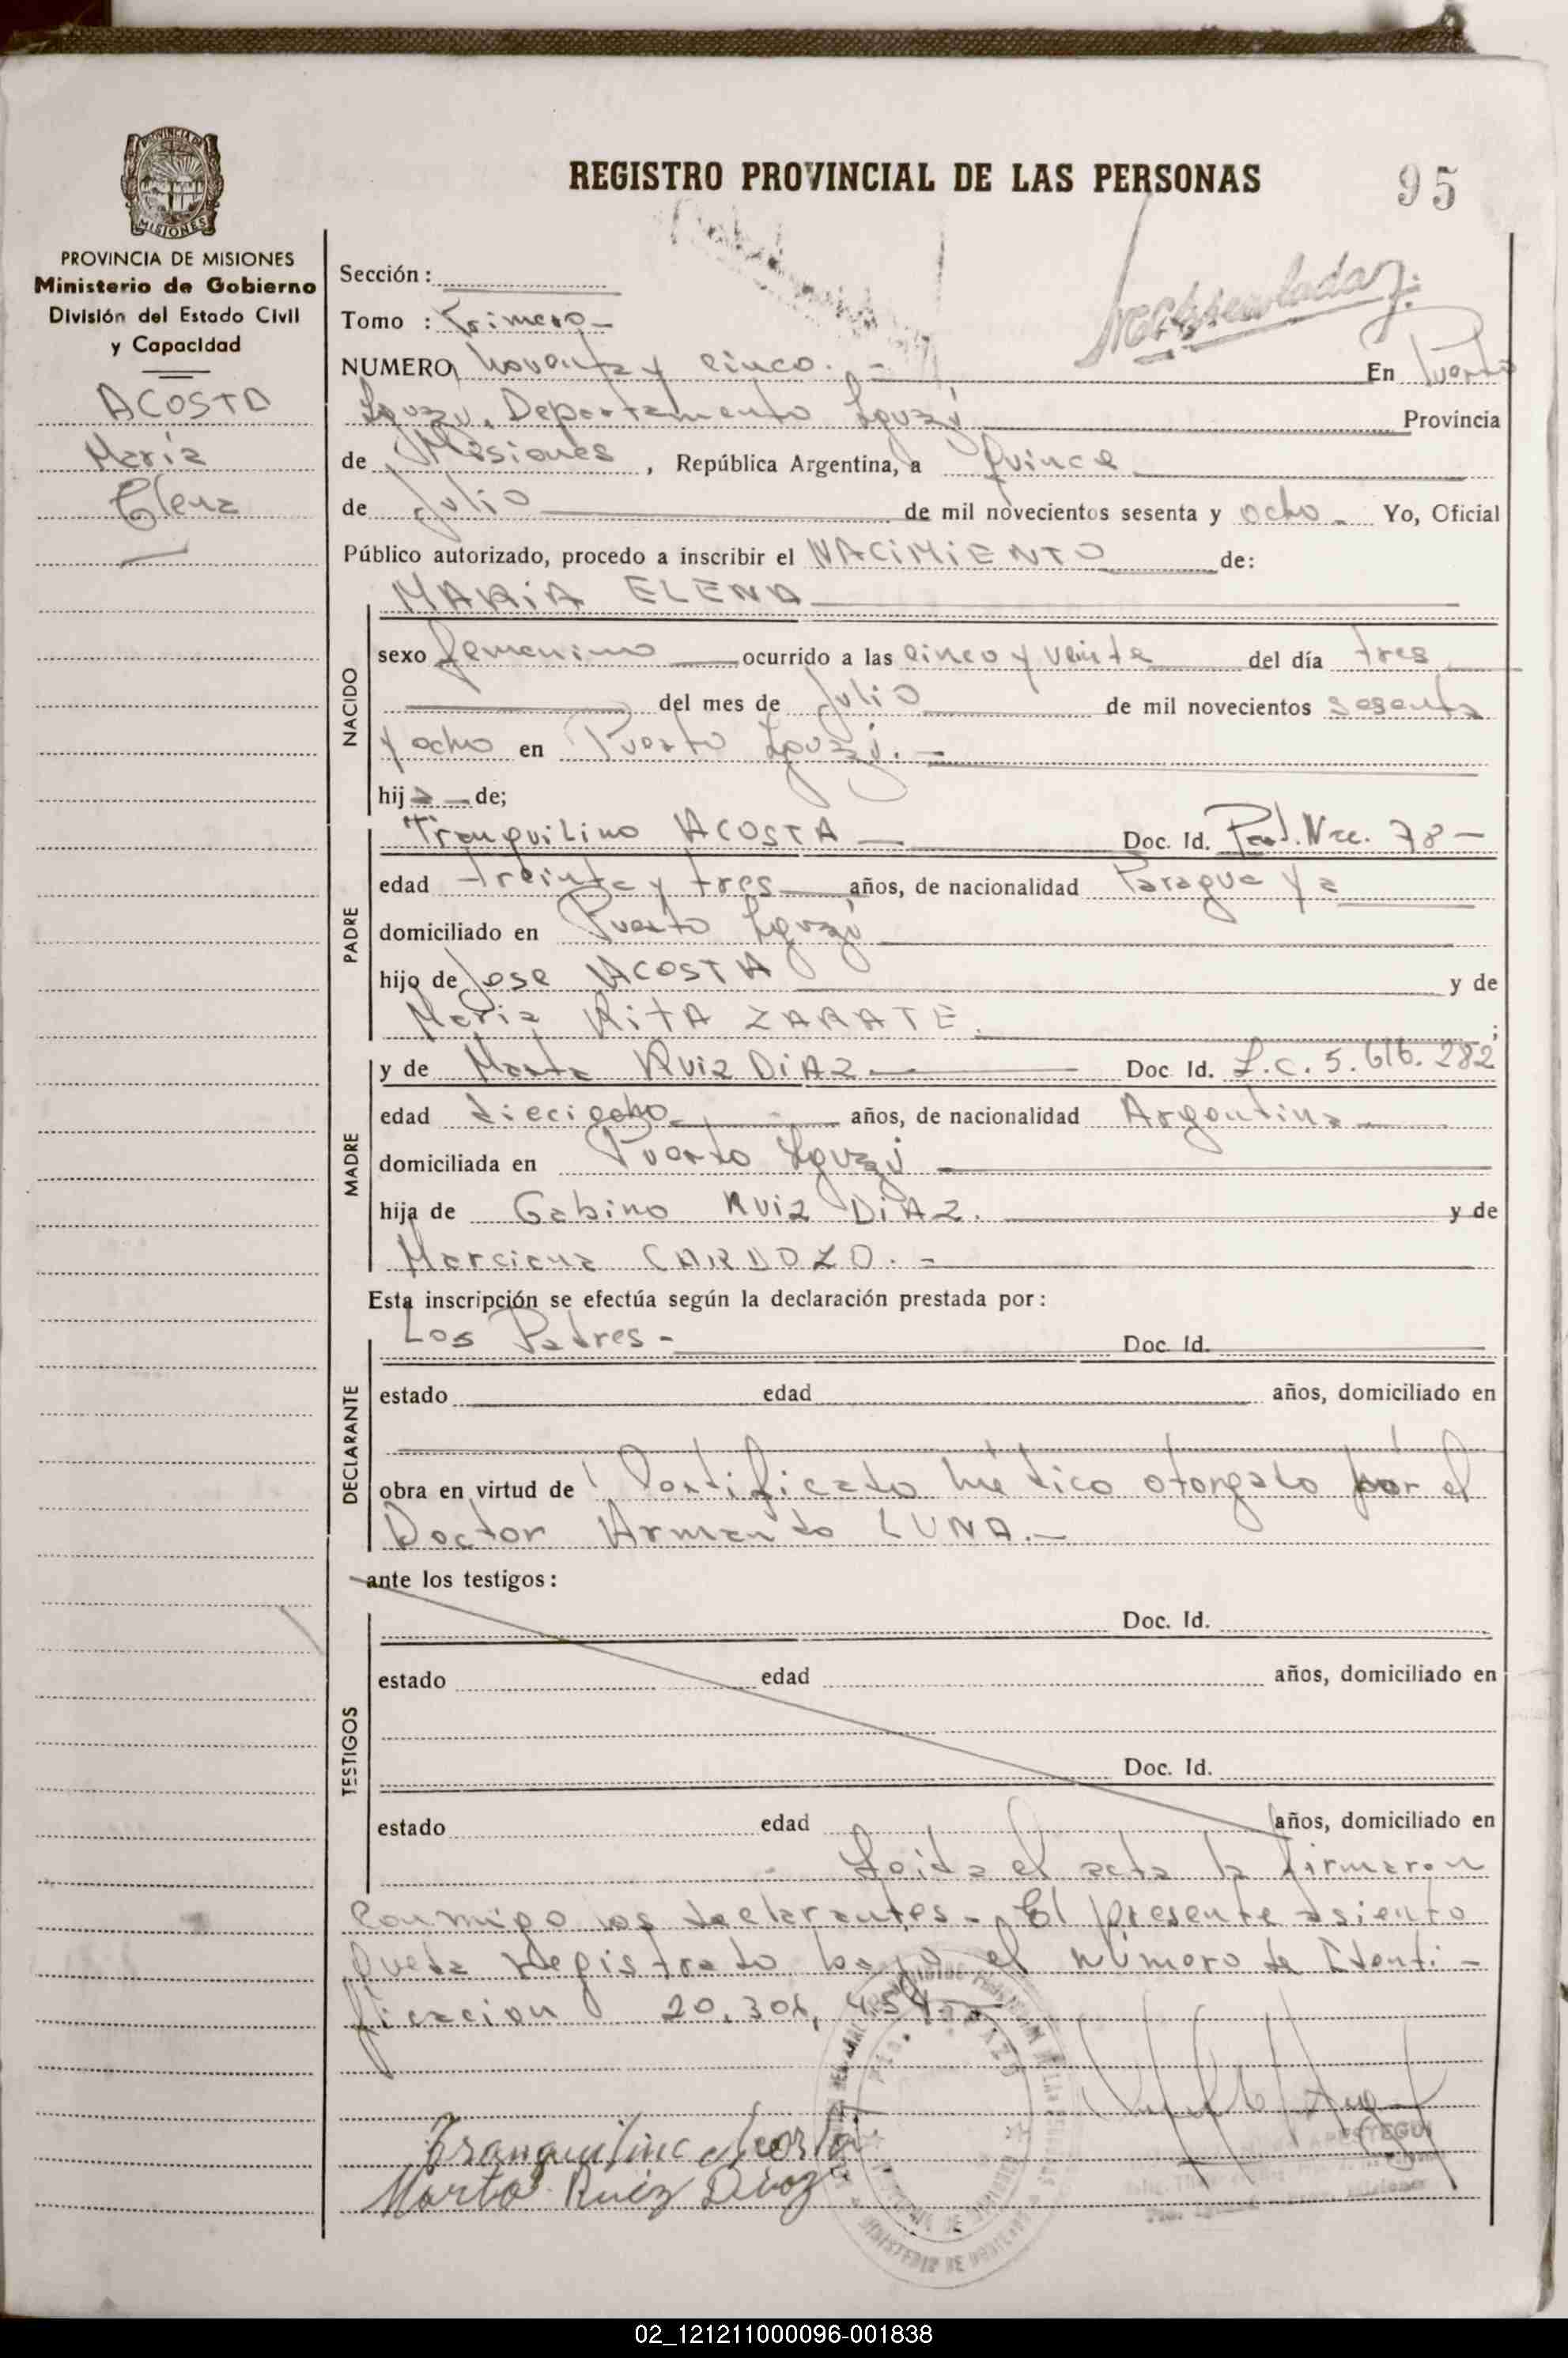 REGISTRO PROVINCIAL DE LAS PERSONAS
95
PROVINCIA DE MISIONES
Ministerio de Gobierno
División del Estado Civil
y Capacidad
ACOSTA
María
Elena
Sección :
Tomo : Primero
NUMERO noventa y cinco. - En Puerto
Iguazú, Departamento Iguazú Provincia
de Misiones, República Argentina, a quince
de Julio de mil novecientos sesenta y ocho Yo, Oficial
Público autorizado, procedo a inscribir el NACIMIENTO de:
MARIA ELENA
NACIDO
sexo femenino ocurrido a las cinco y veinte del día tres
del mes de Julio de mil novecientos sesenta
y ocho en Puerto Iguazú. -
hija de;
PADRE
Tranquilino ACOSTA Doc. Id. Nac. 78-
edad treinta y tres años, de nacionalidad Paraguaya
domiciliado en Puerto Iguazú
hijo de Jose ACOSTA y de
María Rita ZARATE.
MADRE
y de Marta Ruiz DiAZ Doc. Id. L.C. 5.616.282
edad dieciocho años, de nacionalidad Argentina
domiciliada en Puerto Iguazú
hija de Gabino Ruiz DiAZ. y de
Marciana CARDOZO. -
Esta inscripción se efectúa según la declaración prestada por:
DECLARANTE
Los Padres - Doc. Id.
estado edad años, domiciliado en
obra en virtud de Certificado médico otorgado por el
Doctor Armando LUNA. -
ante los testigos:
TESTIGOS
Doc. Id.
estado edad años, domiciliado en
Doc. Id.
estado edad años, domiciliado en
Leida el acta la firmaron
conmigo los declarantes - El presente asiento
queda registrado bajo el número de Identi-
ficacion
Tranquilino Acosta
Marta Ruiz Diaz
02_121211000096-001838